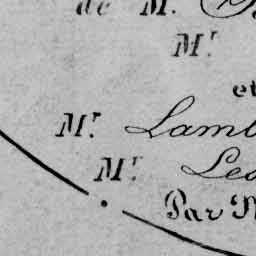 de M.
Mr
et
Mr. Lamb
Mr Les
Par